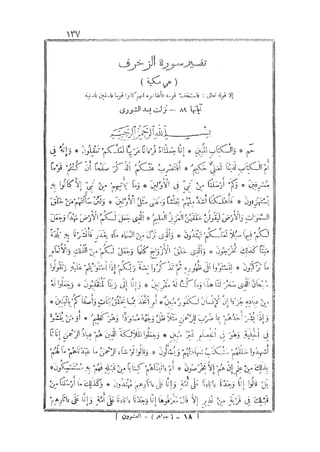 ١٣٧
تفسير سورة الزخرف
( هي مكية )
آياتها ٨٩ — نزلت بعد الشورى
بسم الله الرحمن الرحيم
حم * وَالْكِتَابِ الْمُبِينِ * إِنَّا جَعَلْنَاهُ قُرْءَانًا عَرَبِيًّا لَعَلَّكُمْ تَعْقِلُونَ * وَإِنَّهُ فِي
أُمِّ الْكِتَابِ لَدَيْنَا لَعَلِيٌّ حَكِيمٌ * أَفَنَضْرِبُ عَنْكُمُ الذِّكْرَ صَفْحًا أَنْ كُنْتُمْ قَوْمًا
مُسْرِفِينَ * وَكَمْ أَرْسَلْنَا مِنْ نَبِيٍّ فِي الْأَوَّلِينَ * وَمَا يَأْتِيهِمْ مِنْ نَبِيٍّ إِلَّا كَانُوا بِهِ
يَسْتَهْزِءُونَ * فَأَهْلَكْنَا أَشَدَّ مِنْهُمْ بَطْشًا وَمَضَى مَثَلُ الْأَوَّلِينَ * وَلَئِنْ سَأَلْتَهُمْ مَنْ خَلَقَ
السَّمَوَاتِ وَالْأَرْضَ لَيَقُولُنَّ خَلَقَهُنَّ الْعَزِيزُ الْعَلِيمُ * الَّذِي جَعَلَ لَكُمُ الْأَرْضَ مَهْدًا وَجَعَلَ
لَكُمْ فِيهَا سُبُلًا لَعَلَّكُمْ تَهْتَدُونَ * وَالَّذِي نَزَّلَ مِنَ السَّمَاءِ مَاءً بِقَدَرٍ فَأَنْشَرْنَا بِهِ بَلْدَةً
مَيْتًا كَذَلِكَ تُخْرَجُونَ * وَالَّذِي خَلَقَ الْأَزْوَاجَ كُلَّهَا وَجَعَلَ لَكُمْ مِنَ الْفُلْكِ وَالْأَنْعَامِ
مَا تَرْكَبُونَ * لِتَسْتَوُوا عَلَى ظُهُورِهِ ثُمَّ تَذْكُرُوا نِعْمَةَ رَبِّكُمْ إِذَا اسْتَوَيْتُمْ عَلَيْهِ وَتَقُولُوا
سُبْحَانَ الَّذِي سَخَّرَ لَنَا هَذَا وَمَا كُنَّا لَهُ مُقْرِنِينَ * وَإِنَّا إِلَى رَبِّنَا لَمُنْقَلِبُونَ * وَجَعَلُوا لَهُ
مِنْ عِبَادِهِ جُزْءًا إِنَّ الْإِنْسَانَ لَكَفُورٌ مُبِينٌ * أَمِ اتَّخَذَ مِمَّا يَخْلُقُ بَنَاتٍ وَأَصْفَاكُمْ بِالْبَنِينَ *
وَإِذَا بُشِّرَ أَحَدُهُمْ بِمَا ضَرَبَ لِلرَّحْمَنِ مَثَلًا ظَلَّ وَجْهُهُ مُسْوَدًّا وَهُوَ كَظِيمٌ * أَوَمَنْ يُنَشَّأُ
فِي الْحِلْيَةِ وَهُوَ فِي الْخِصَامِ غَيْرُ مُبِينٍ * وَجَعَلُوا الْمَلَائِكَةَ الَّذِينَ هُمْ عِبَادُ الرَّحْمَنِ إِنَاثًا
أَشَهِدُوا خَلْقَهُمْ سَتُكْتَبُ شَهَادَتُهُمْ وَيُسْأَلُونَ * وَقَالُوا لَوْ شَاءَ الرَّحْمَنُ مَا عَبَدْنَاهُمْ مَا لَهُمْ
بِذَلِكَ مِنْ عِلْمٍ إِنْ هُمْ إِلَّا يَخْرُصُونَ * أَمْ ءَاتَيْنَاهُمْ كِتَابًا مِنْ قَبْلِهِ فَهُمْ بِهِ مُسْتَمْسِكُونَ *
بَلْ قَالُوا إِنَّا وَجَدْنَا ءَابَاءَنَا عَلَى أُمَّةٍ وَإِنَّا عَلَى ءَاثَارِهِمْ مُهْتَدُونَ * وَكَذَلِكَ مَا أَرْسَلْنَا مِنْ
قَبْلِكَ فِي قَرْيَةٍ مِنْ نَذِيرٍ إِلَّا قَالَ مُتْرَفُوهَا إِنَّا وَجَدْنَا ءَابَاءَنَا عَلَى أُمَّةٍ وَإِنَّا عَلَى ءَاثَارِهِمْ
[ ١٨ — ( جواهر ) — العشرون ]